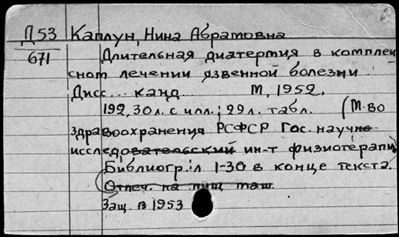 Д53 Каплун, Нина Абрамовна
671 Длительная диатермия в комплек
сном лечении язвенной болезни.
Дисс... канд. М, 1952.
192, 30 л. с илл.; 29 л. табл. (М-во
здравоохранения РСФСР Гос. научно-
исследовательский ин-т физиотерапии)
Библиогр: л 1-30 в конце текста.
Отпеч. на пиш. маш.
Защ. в 1953